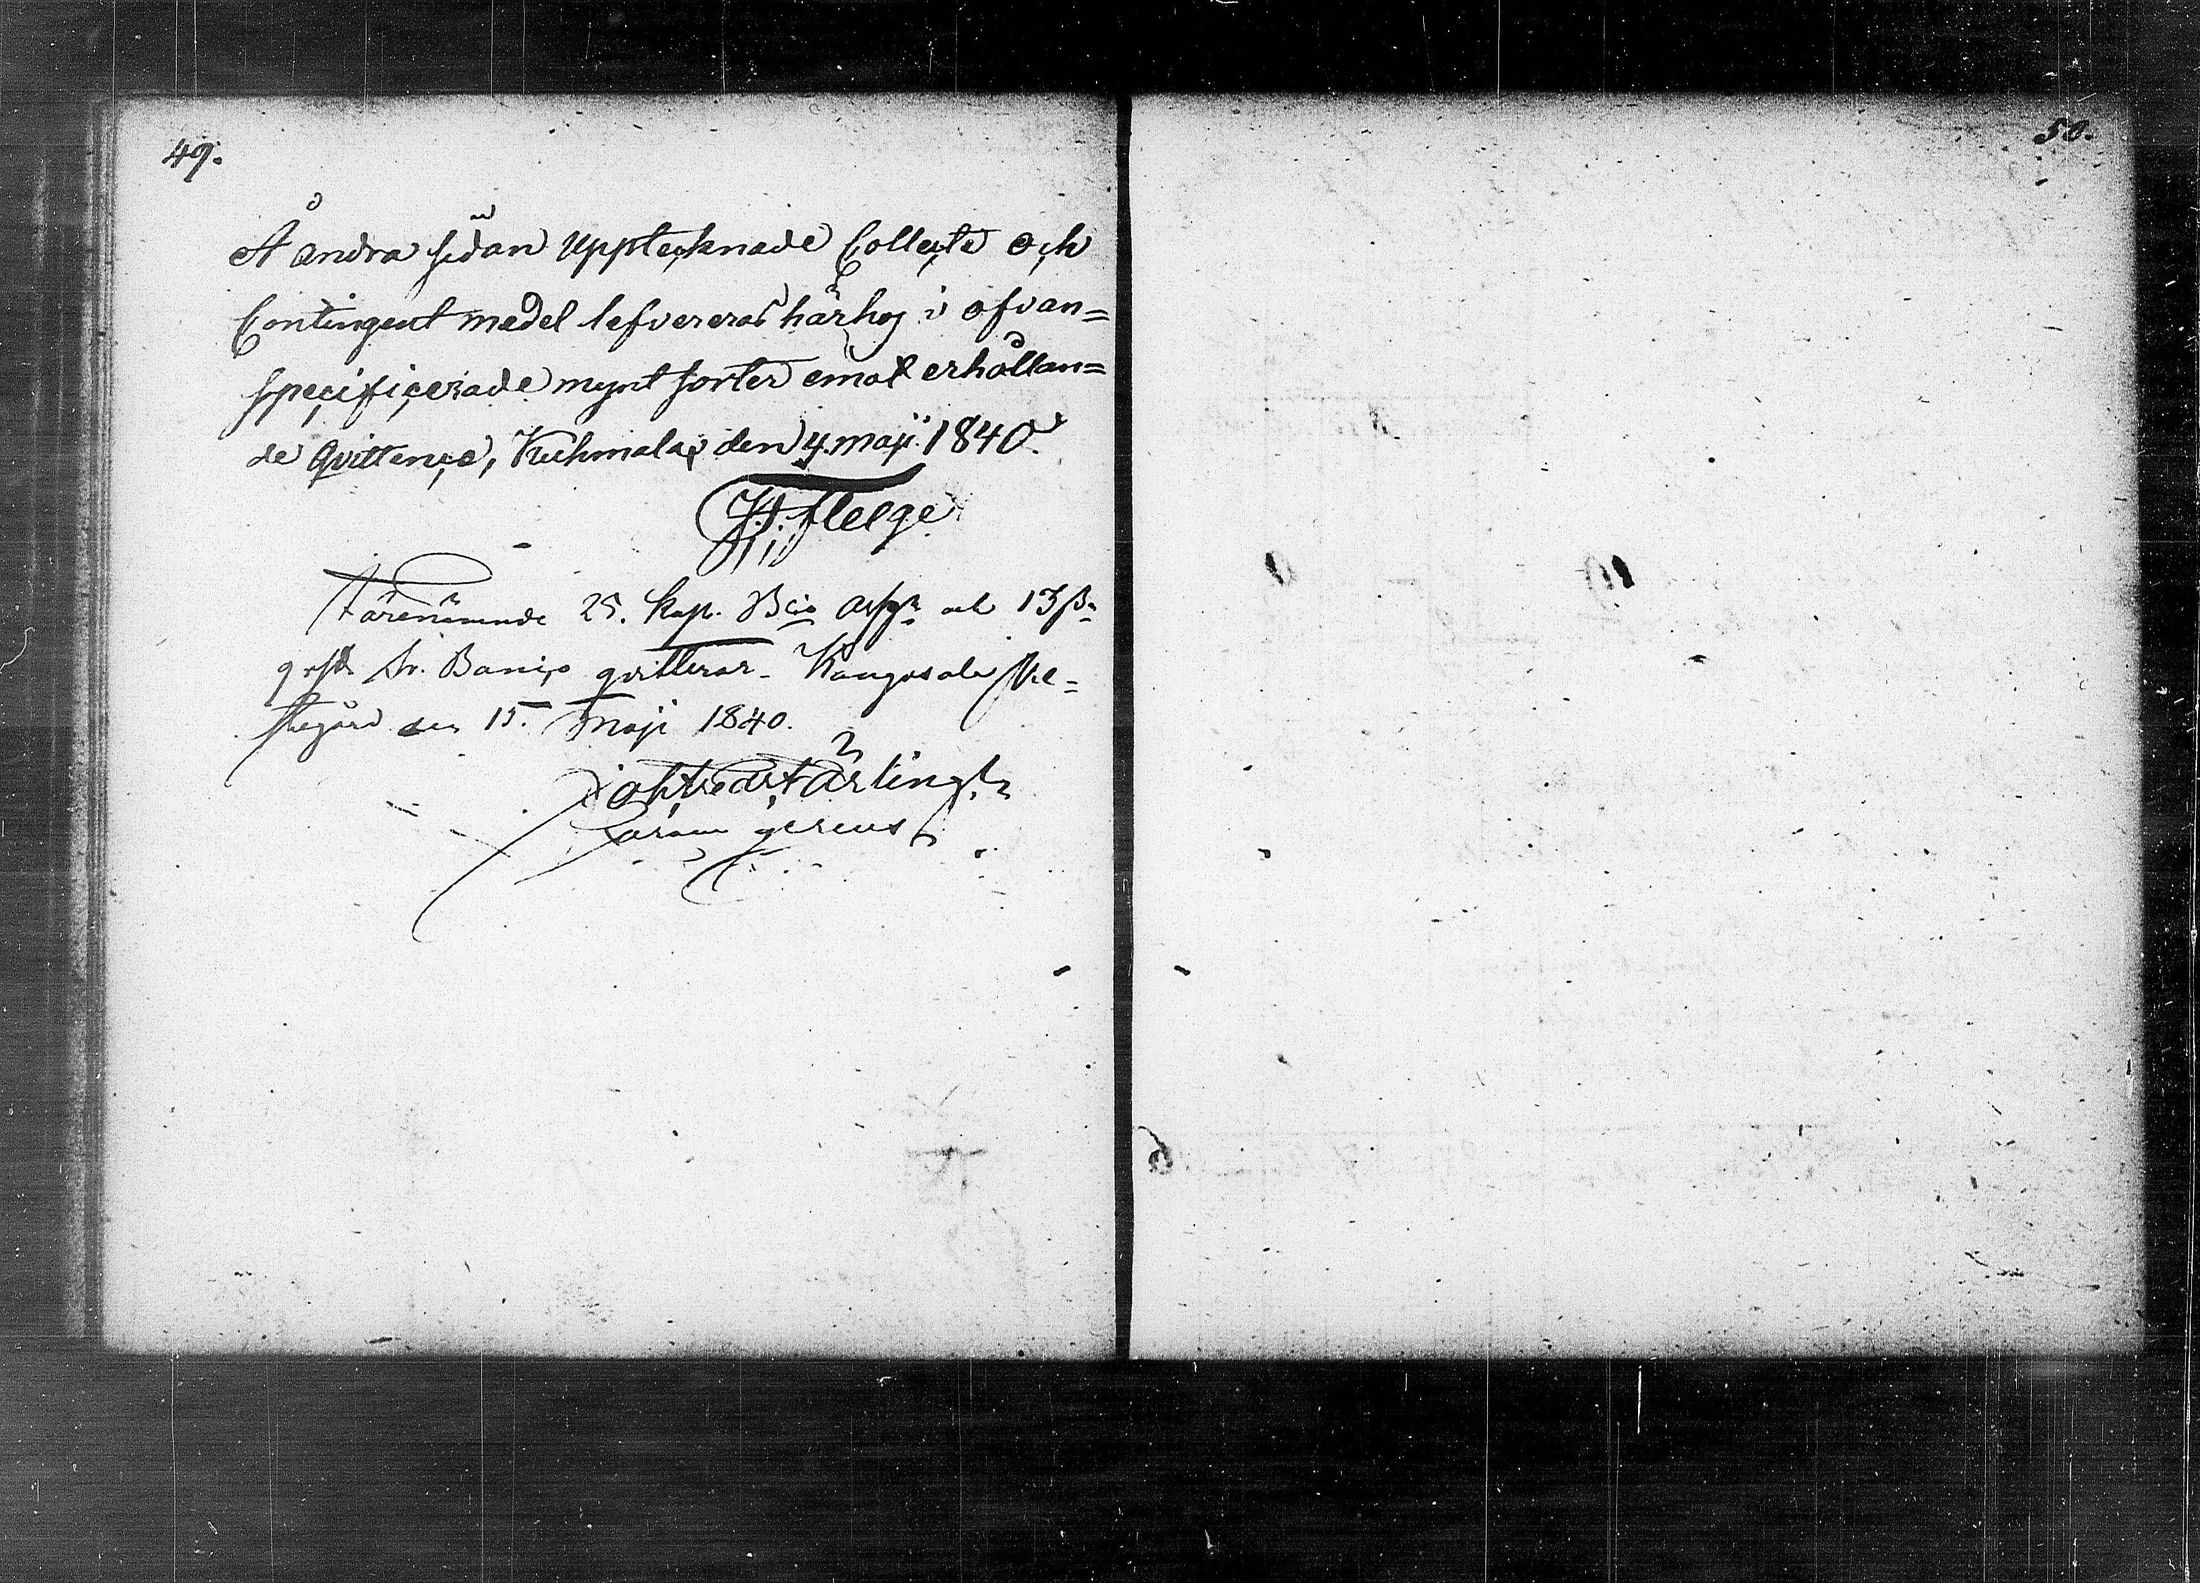 49.
Å andra sidan Upptecknade Collecte och
Contingent medel lefvereras härhos i ofvan=
specificerade mynt sorter emot erhållan=
de Qvittence, Kuhmalax den 4. maji 1840.
Helge
Förenämnde 25. kop. Bco och 13
Sv. Banco qvitterar. Kangasala
den 15. Maji 1840.
gerens
50.